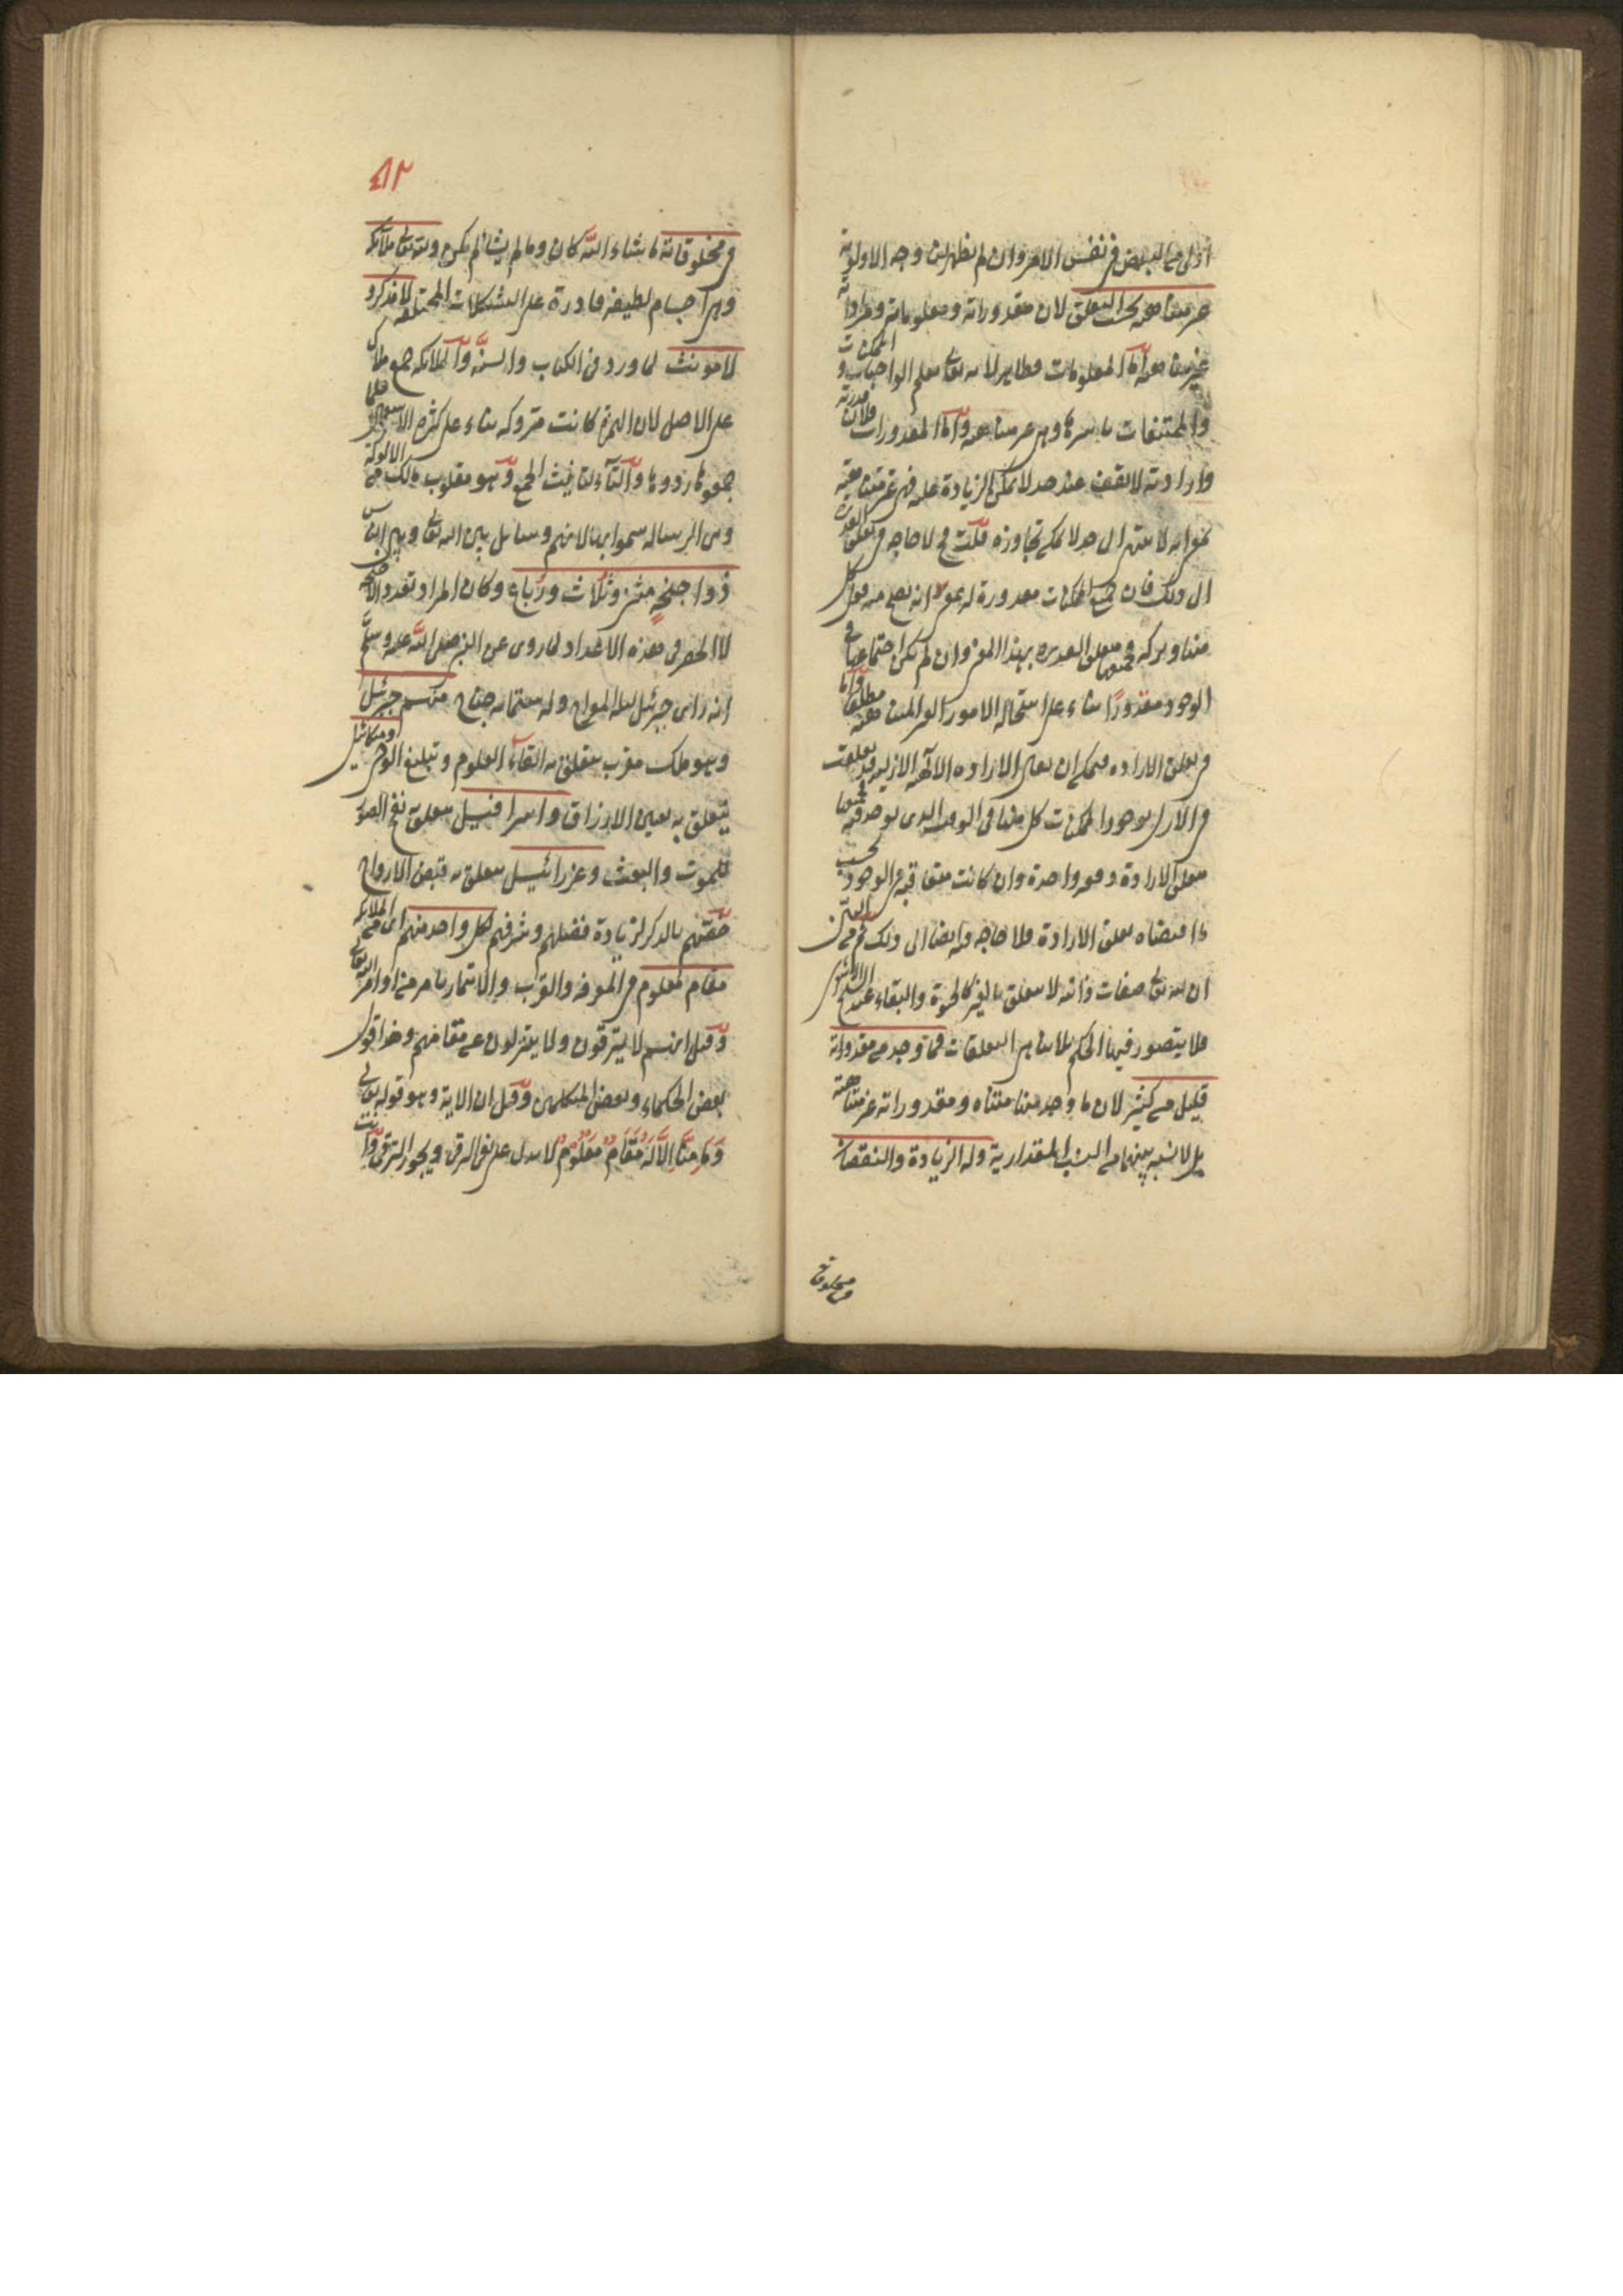 أولى من البعض في نفس الامر وان لم يظهر لنا وجه الاولوية
غير متناهية بحسب التعلق لان مقدوراته ومعلوماته ومراداته
غير متناهية أما المعلومات فظاهر لانه تعالى يعلم الواجبات والممكنات
والممتنعات باسرها وهي غير متناهية وأما المقدورات فلان قدرته
وارادته لا تقف عند حد لا يمكن الزيادة عليه فهي غير متناهية
بمعنى انه لا تنتهي الى حد لا يمكن تجاوزه قلت لا حاجة في تعلق القدرة
الى ذلك فان جميع الممكنات مقدورة له بمعنى انه يصح منه فعل كل
منها وتركه فجميعها متعلق القدرة بهذا المعنى وان لم يكن اجتماعها في
الوجود مقدورًا بناء على استحالة الامور الغير المتناهية مطلقا وأما
في تعلق الارادة فيمكن ان يقال الارادة الالهية الازلية قد تعلقت
في الازل بوجود الممكنات كل منها في الوقت الذي يوجد فيه فجميعها
متعلق الارادة دفعة واحدة وان كانت متعاقبة في الوجود بحسب
ما اقتضاه تعلق الارادة فلا حاجة ايضا الى ذلك ثم
ان لله تعالى صفات ذاتية لا تتعلق بالغير كالحيوة والبقاء عند الشيخ الاشعري
فلا يتصور فيها الحكم بلا تناهي التعلقات فما وجد من مقدوراته
قليل من كثير لان ما وجد منها متناه ومقدوراته غير متناهية
بل لا نسبة بينهما من النسب المقدارية وله الزيادة والنقصان
في مخلوقاته
٥٢
في مخلوقاته ما شاء الله كان وما لم يشأ لم يكن ولله تعالى ملائكة
وهي اجسام لطيفة قادرة على التشكلات المختلفة لا مذكر و
لا مؤنث لما ورد في الكتاب والسنة والملائكة جمع ملاك
على الاصل لان الهمزة كانت متروكة بناء على كثرة الاستعمال فلما
جمعوها ردوها والتاء لتانيث الجمع وهو مقلوب مالك من الالوكة
وهي الرسالة سموا بها لانهم وسائل بين الله تعالى وبين الناس
ذوا جنحةٍ مثنى وثلاث ورباع وكان المراد تعدد الاجنحة
لا الحصر في هذه الاعداد لما روى عن النبي صلى الله عليه وسلم
انه راى جبرئيل ليلة المعراج وله ستمائة جناح منهم جبرئيل
وهو ملك مقرب يتعلق به القاء العلوم وتبليغ الوحي وميكائيل
يتعلق به تعيين الارزاق واسرافيل يتعلق به نفخ الصور
للموت والبعث وعزرائيل يتعلق به قبض الارواح
خصّهم بالذكر لزيادة فضلهم وشرفهم لكل واحد منهم اى من الملائكة
مقام معلوم في المعرفة والقرب والائتمار بامر من اوامر الله تعالى
وقيل انهم لا يترقون ولا يتنزلون عن مقامهم وهذا قول
بعض الحكماء وبعض المتكلمين وقيل ان الاية وهو قوله تعالى
وَمَا مِنَّا اِلَّا لَهُ مَقَامٌ مَعْلُوْمٌ لا يدل على نفي الترقي ويجوز الترقي